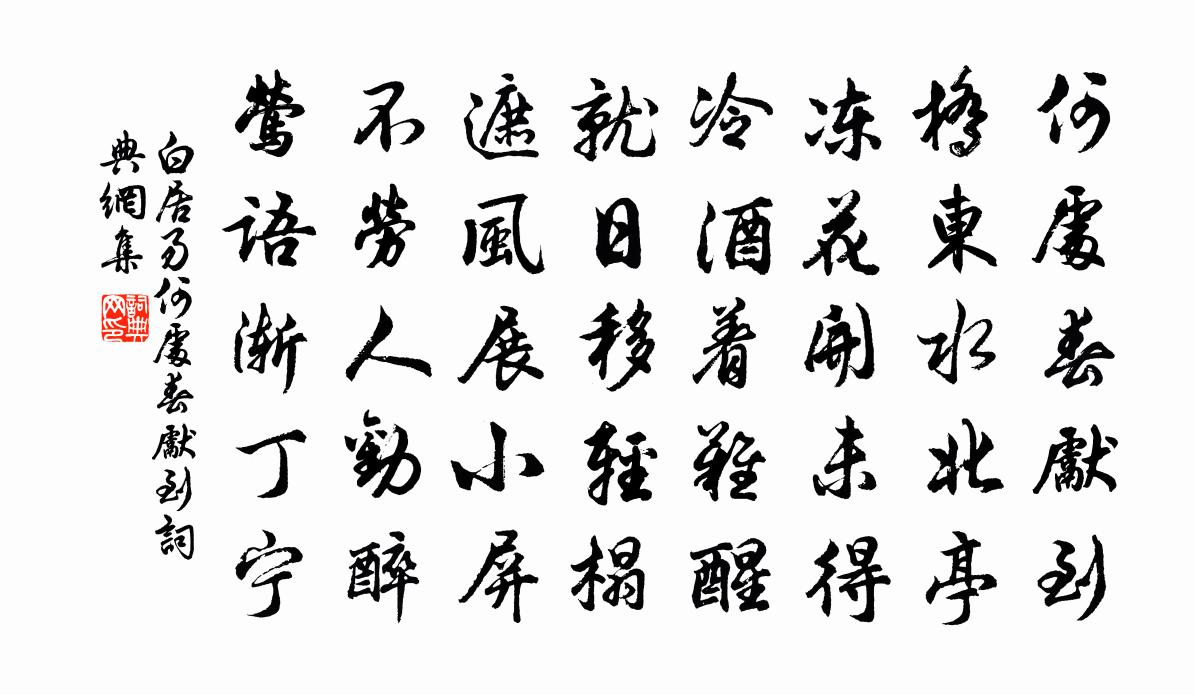 何處春獻到
橋東水北亭
凍花開未得
冷酒着難醒
就日移輕榻
遮風展小屏
不勞人勸醉
鶯語渐丁宁
白居易何處春獻到詞
典網集
詞典
网印